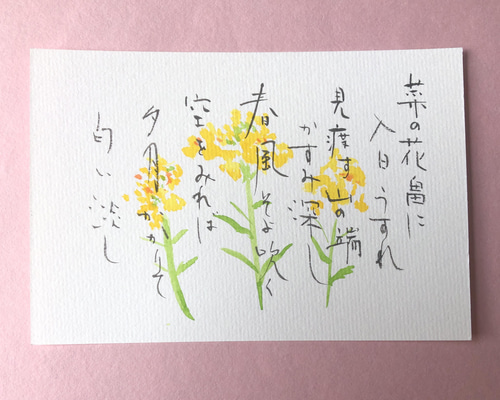 菜の花畠に
入日うすれ
見渡す山の端
かすみ深し
春風そよ吹く
空をみれば
夕月かかりて
匂い淡し